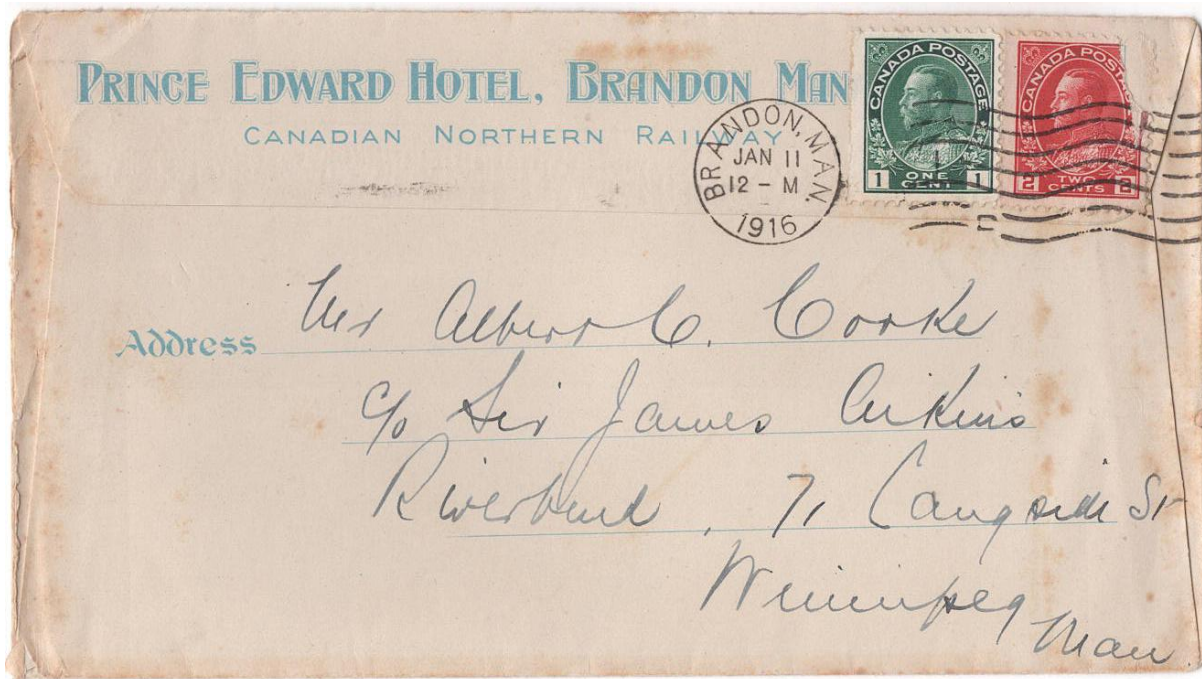 PRINCE EDWARD HOTEL, BRANDON MAN
CANADIAN NORTHERN RAILWAY
BRANDON, MAN.
JAN 11
12 - M
1916
CANADA POSTAGE
1 ONE CENT 1
CANADA POSTAGE
2 TWO CENTS 2
Mr Albert C. Cooke
Address
c/o Sir James Aikins
Riverbend, 71 Langside St
Winnipeg
Man